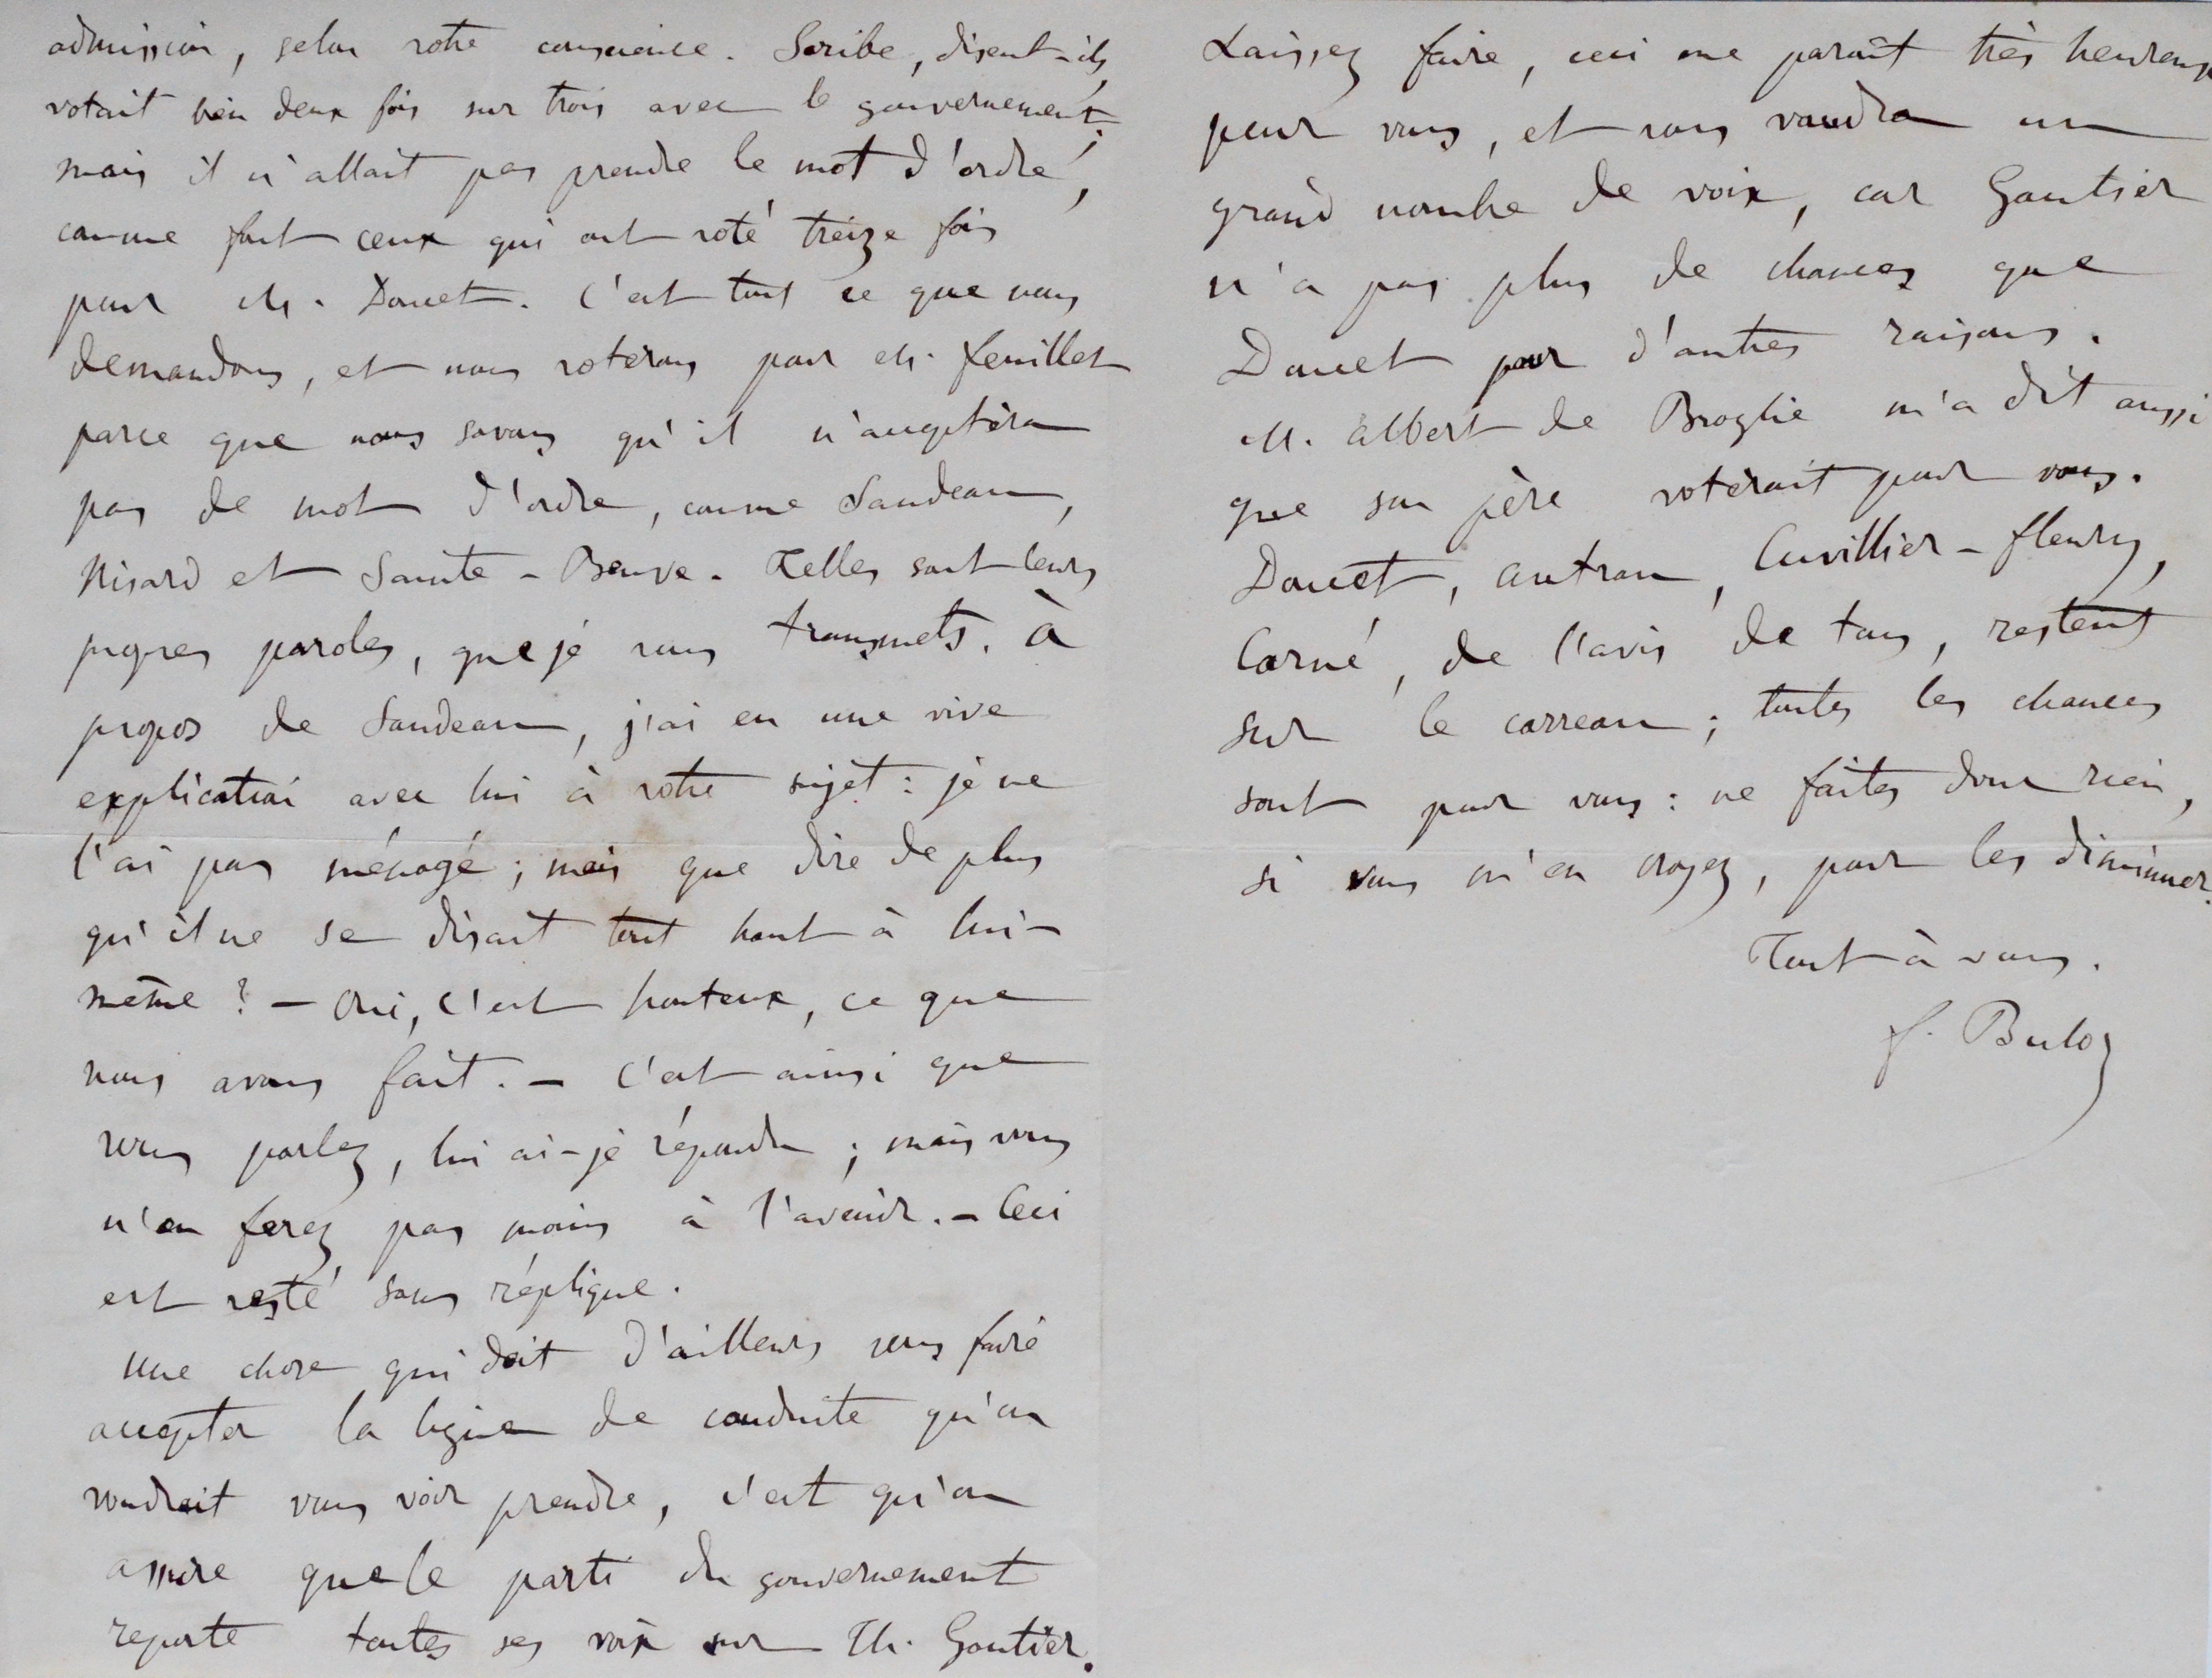 admission, selon votre conscience. Scribe, disent-ils,
votait bien deux fois sur trois avec le gouvernement;
mais il n'allait pas prendre le mot d'ordre,
comme font ceux qui ont voté treize fois
pour M. Doucet. C'est tout ce que nous
demandons, et nous voterons pour M. feuillet
parce que nous savons qu'il n'acceptera
pas de mot d'ordre, comme Sandeau,
Nisard et Sainte-Beuve. Telles sont leurs
propres paroles, que je vous transmets. à
propos de Sandeau, j'ai eu une vive
explication avec lui à votre sujet: je ne
l'ai pas ménagé; mais que dire de plus
qu'il ne se disait tout haut à lui-
même? — Oui, c'est honteux, ce que
nous avons fait. — C'est ainsi que
vous parlez, lui ai-je répondu; mais vous
n'en ferez pas moins à l'avenir. — Ceci
est resté sans réplique.
Une chose qui doit d'ailleurs vous faire
accepter la ligne de conduite qu'on
voudrait vous voir prendre, c'est qu'on
assure que le parti du gouvernement
reporte toutes ses voix sur Th. Gautier.
Laissez faire, ceci me paraît très heureux
pour vous, et vous vaudra un
grand nombre de voix, car Gautier
n'a pas plus de chances que
Doucet pour d'autres raisons.
M. albert de Broglie m'a dit aussi
que son père voterait pour vous.
Doucet, autran, Cuvillier-fleury,
Carné, de l'avis de tous, restent
sur le carreau; toutes les chances
sont pour vous: ne faites donc rien,
si vous m'en croyez, pour les diminuer.
Tout à vous.
f. Buloz